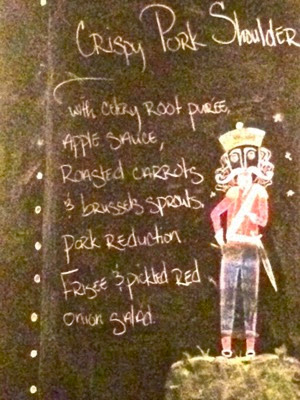 Crispy Pork Shoulder
with celery root puree,
Apple sauce,
Roasted carrots
& brussels sprouts,
pork reduction.
Frisee & pickled red
onion salad.